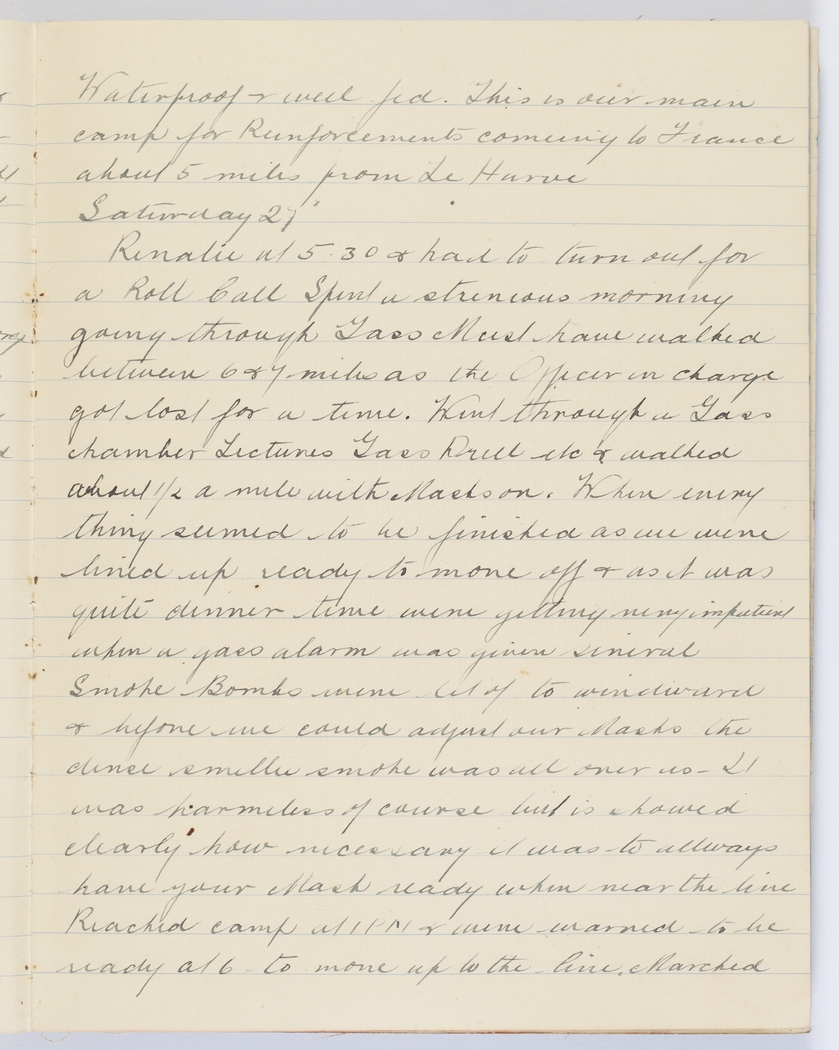 Waterproof & well fed. This is our main
camp for Reinforcements comeing to France
about 5 miles from Le Harve
Saturday 27"
Revalie at 5.30 & had to turn out for
a Roll Call Spent a strenious morning
going through Gass Must have walked
between 6 & 7 miles as the Officer in charge
got lost for a time. Went through a Gass
chamber Lectures Gass Drill etc & walked
about 1/2 a mile with Masks on. When every
thing seemed to be finished as we were
lined up ready to move off & as it was
quite dinner time were getting very impatient
when a gass alarm was given several
Smoke Bombs were let of to windward
& before we could adjust our Masks the
dense smelle smoke was all over us - It
was harmeless of course but is showed
clearly how necessary it was to allways
have your Mask ready when near the line
Reached camp at 1 PM & were warned to be
ready at 6 to move up to the line. Marched